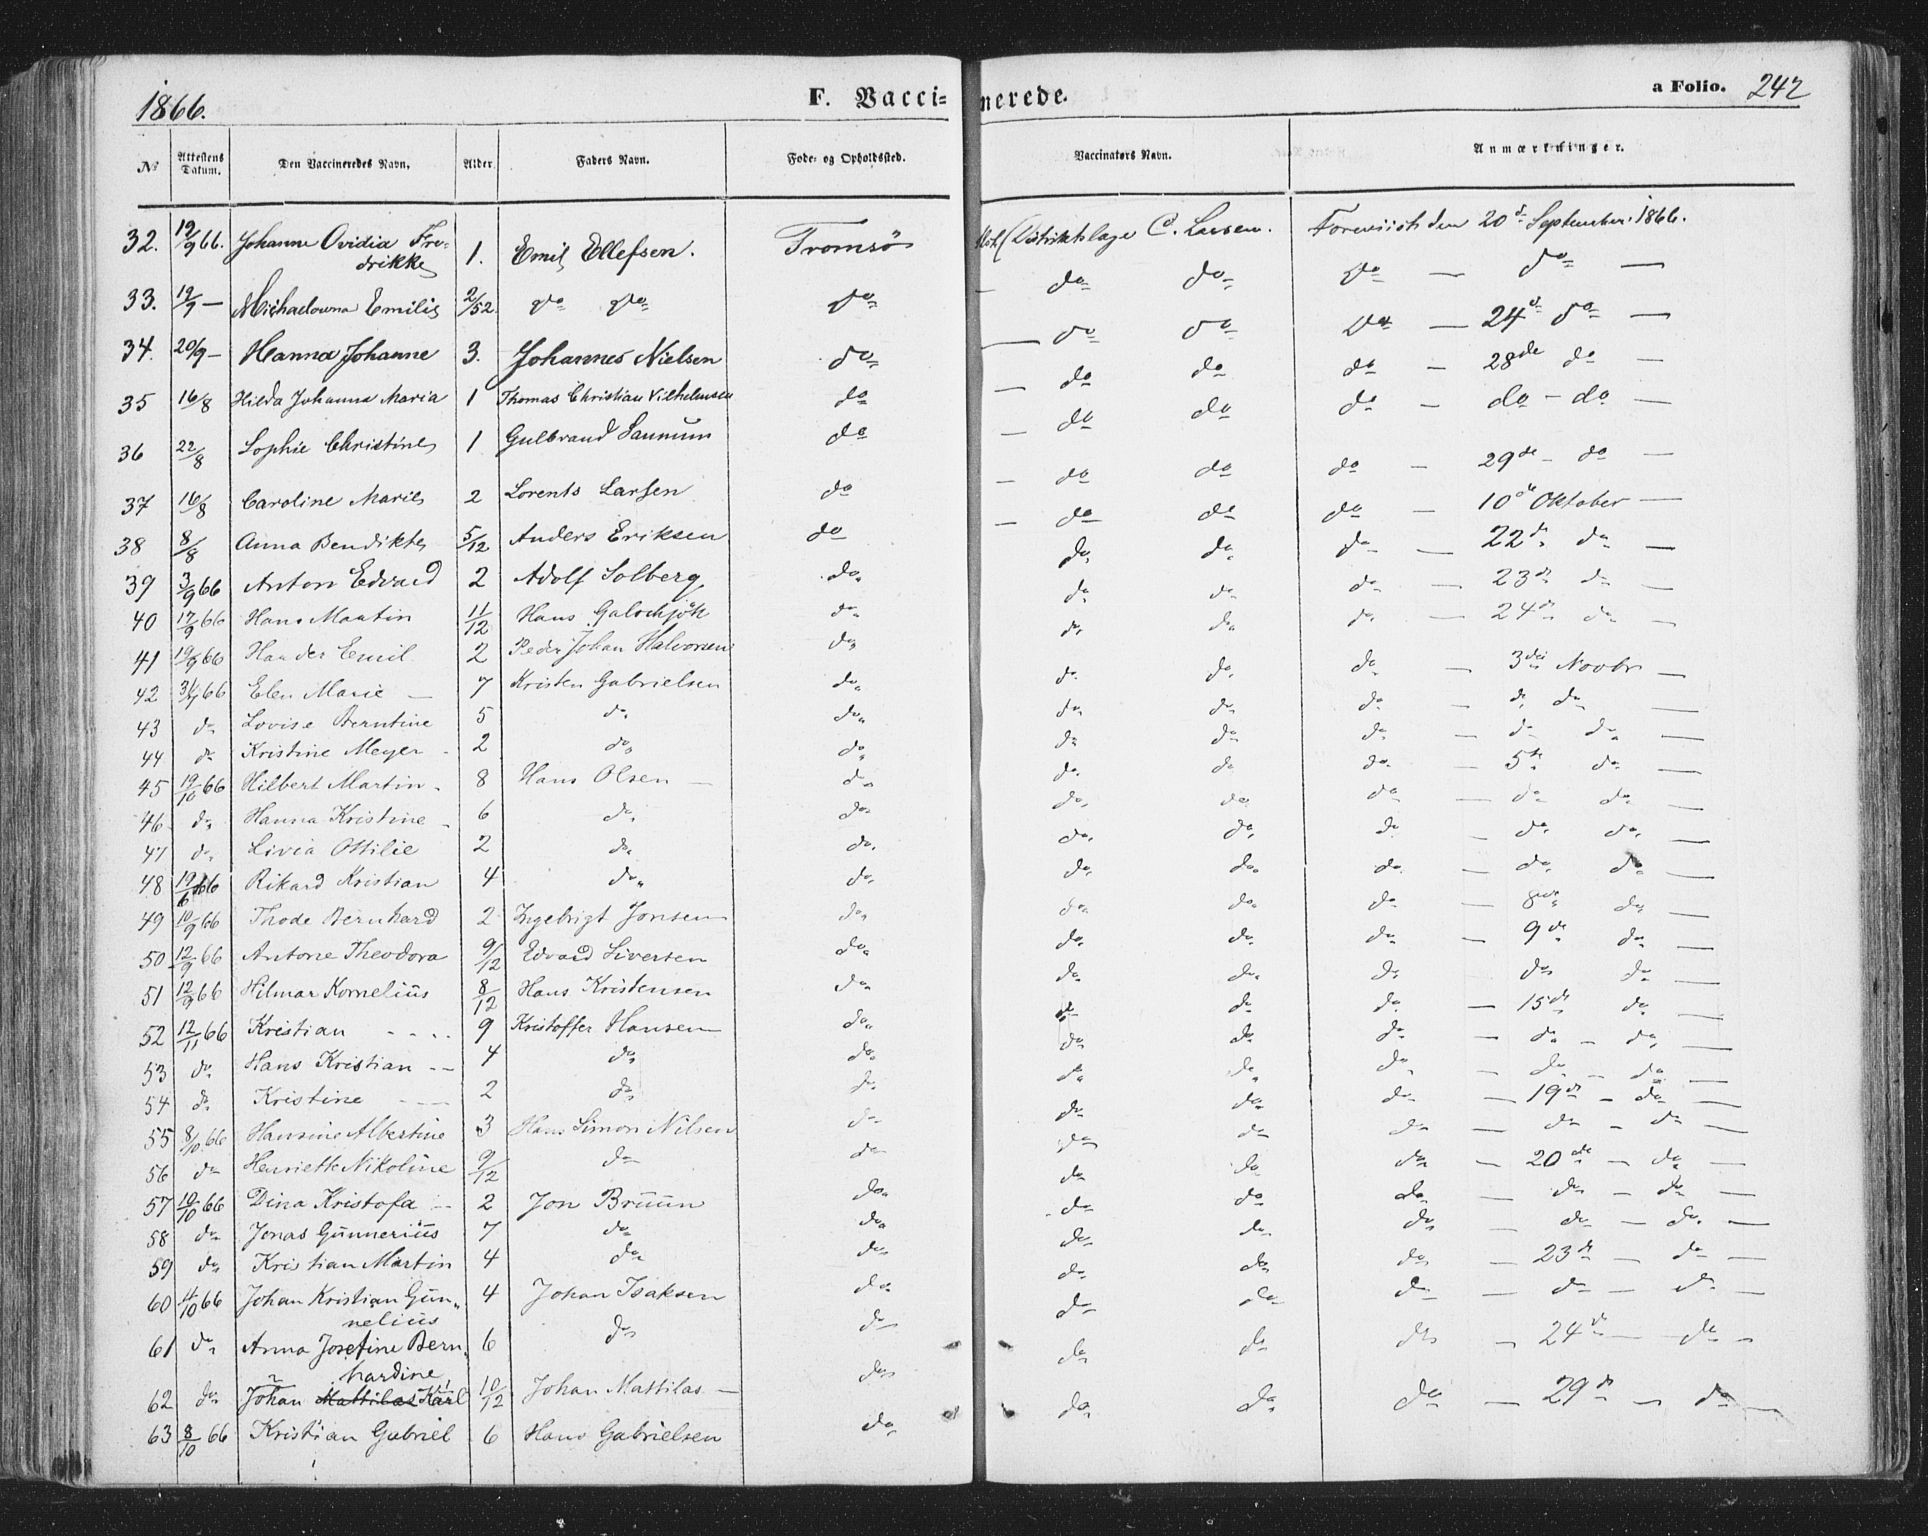 1866. F. Vaccinerede. a Folio. 242
No Attestens Datum. Den Vaccineredes Navn. Alder Faders Navn. Føde- og Opholdssted. Vaccinatørs Navn. Anmærkninger.
32. 19/9 66. Johanne Ovidia Fredrikke 1. Emil Ellefsen. Tromsø C. Larsen. den 20d September 1866.
33. 19/9 — Emilie 2/52 do do do — do do do — do —
34. 20/9 — Hanna Johanne 3. Johannes Nielsen do — do do do — 24d do —
35 16/8 Hilda Johanna Maria 1 Thomas Christian Vilhelmsen do — do do do — 28de do —
36 22/8 Sophie Christine 1 Gulbrand do — do do do — do — do —
37 16/8 Caroline Marie 2 Lorents Larsen do — do do do — 29de — do —
38 8/8 Anna Bendikte 5/12 Anders Eriksen do — do do do — 10de Oktober —
39 3/9 66 Anton Edvard 2 Adolf Solberg do do do do — 22de do —
40 17/9 66 Hans Martin 11/12 Hans do do do do — 23de do —
41 19/9 66 Emil 2 Peder Johan Halvorsen do do do do — 24de do —
42 66 Elen Marie — 7 Kristen Gabrielsen do do do do — 3die Novbr —
43 do Lovise Berntine 5 do do do do do — do do —
44 do Kristine Meyer 2 do do do do do — do do —
45 19/10 66 Hilbert Martin 8 Hans Olsen — do do do do — 5te do —
46 do Hanna Kristine 6 do do do do do — do do —
47 do Livia Ottilie 2 do do do do do — do do —
48 66 Rikard Kristian 4 do do do do do — do do —
49 10/9 66 Thode Bernhard 2 Ingebrigt Jonsen do do do do — 8de do —
50 12/9 66 Antone Theodora 9/12 Edvard Siversen do do do do — 9de do —
51 12/9 66 Hilmar Kornelius 8/12 Hans Kristensen do do do do do do —
52 12/11 66 Kristian 9 Kristoffer Hansen do do do do — 15de do —
53 do Hans Kristian — 4 do do do do do — do — do —
54 do Kristine — 2 do do do do do — do — do —
55 8/10 66 Hansine Albertine 3 Hans Simon Nilsen do do do do — 19de — do —
56 do Henriette Nikoline 9/12 do do do do do — do — do —
57 10/10 66 Dina Kristofa — 2 Jon Bruun do do do do — 20de — do —
58 do Jonas Gunnerius 7 do do do do do — do — do —
59 do Kristian Martin 4 do do do do do — do — do —
60 4/10 66 Johan Kristian Gunnelius 4 Johan Isaksen do do do do — 23de — do —
61 do Anna Josefine Bernhardine 6 do do do do do — do — do
62 do Johan Mattilas Karl 10/12 Johan Mattilas — do do do do — 24de — do —
63 8/10 66 Kristian Gabriel 6 Hans Gabrielsen do do do do — 29de — do —